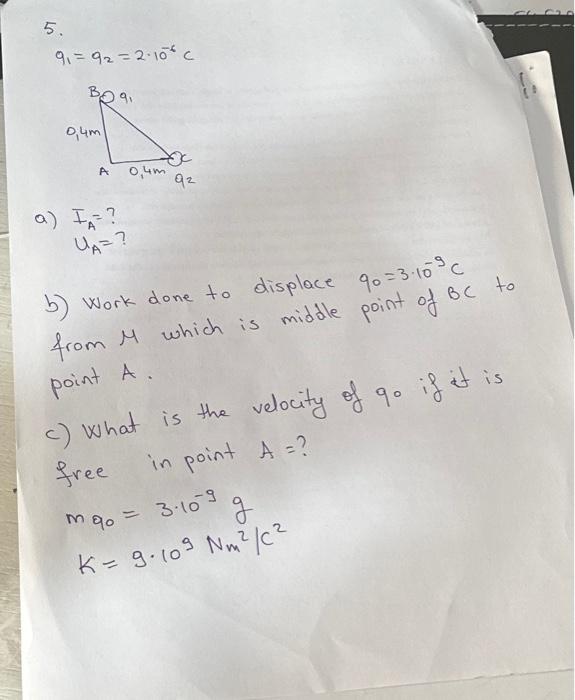 5.
q₁ = q₂ = 2·10⁻⁶ C
B q₁
0,4m
A 0,4m C
q₂
a) I_A = ?
U_A = ?
b) Work done to displace q₀ = 3·10⁻⁹ C
from M which is middle point of BC to
point A.
c) What is the velocity of q₀ if it is
free in point A = ?
m q₀ = 3·10⁻⁹ g
K = 9·10⁹ Nm²/C²